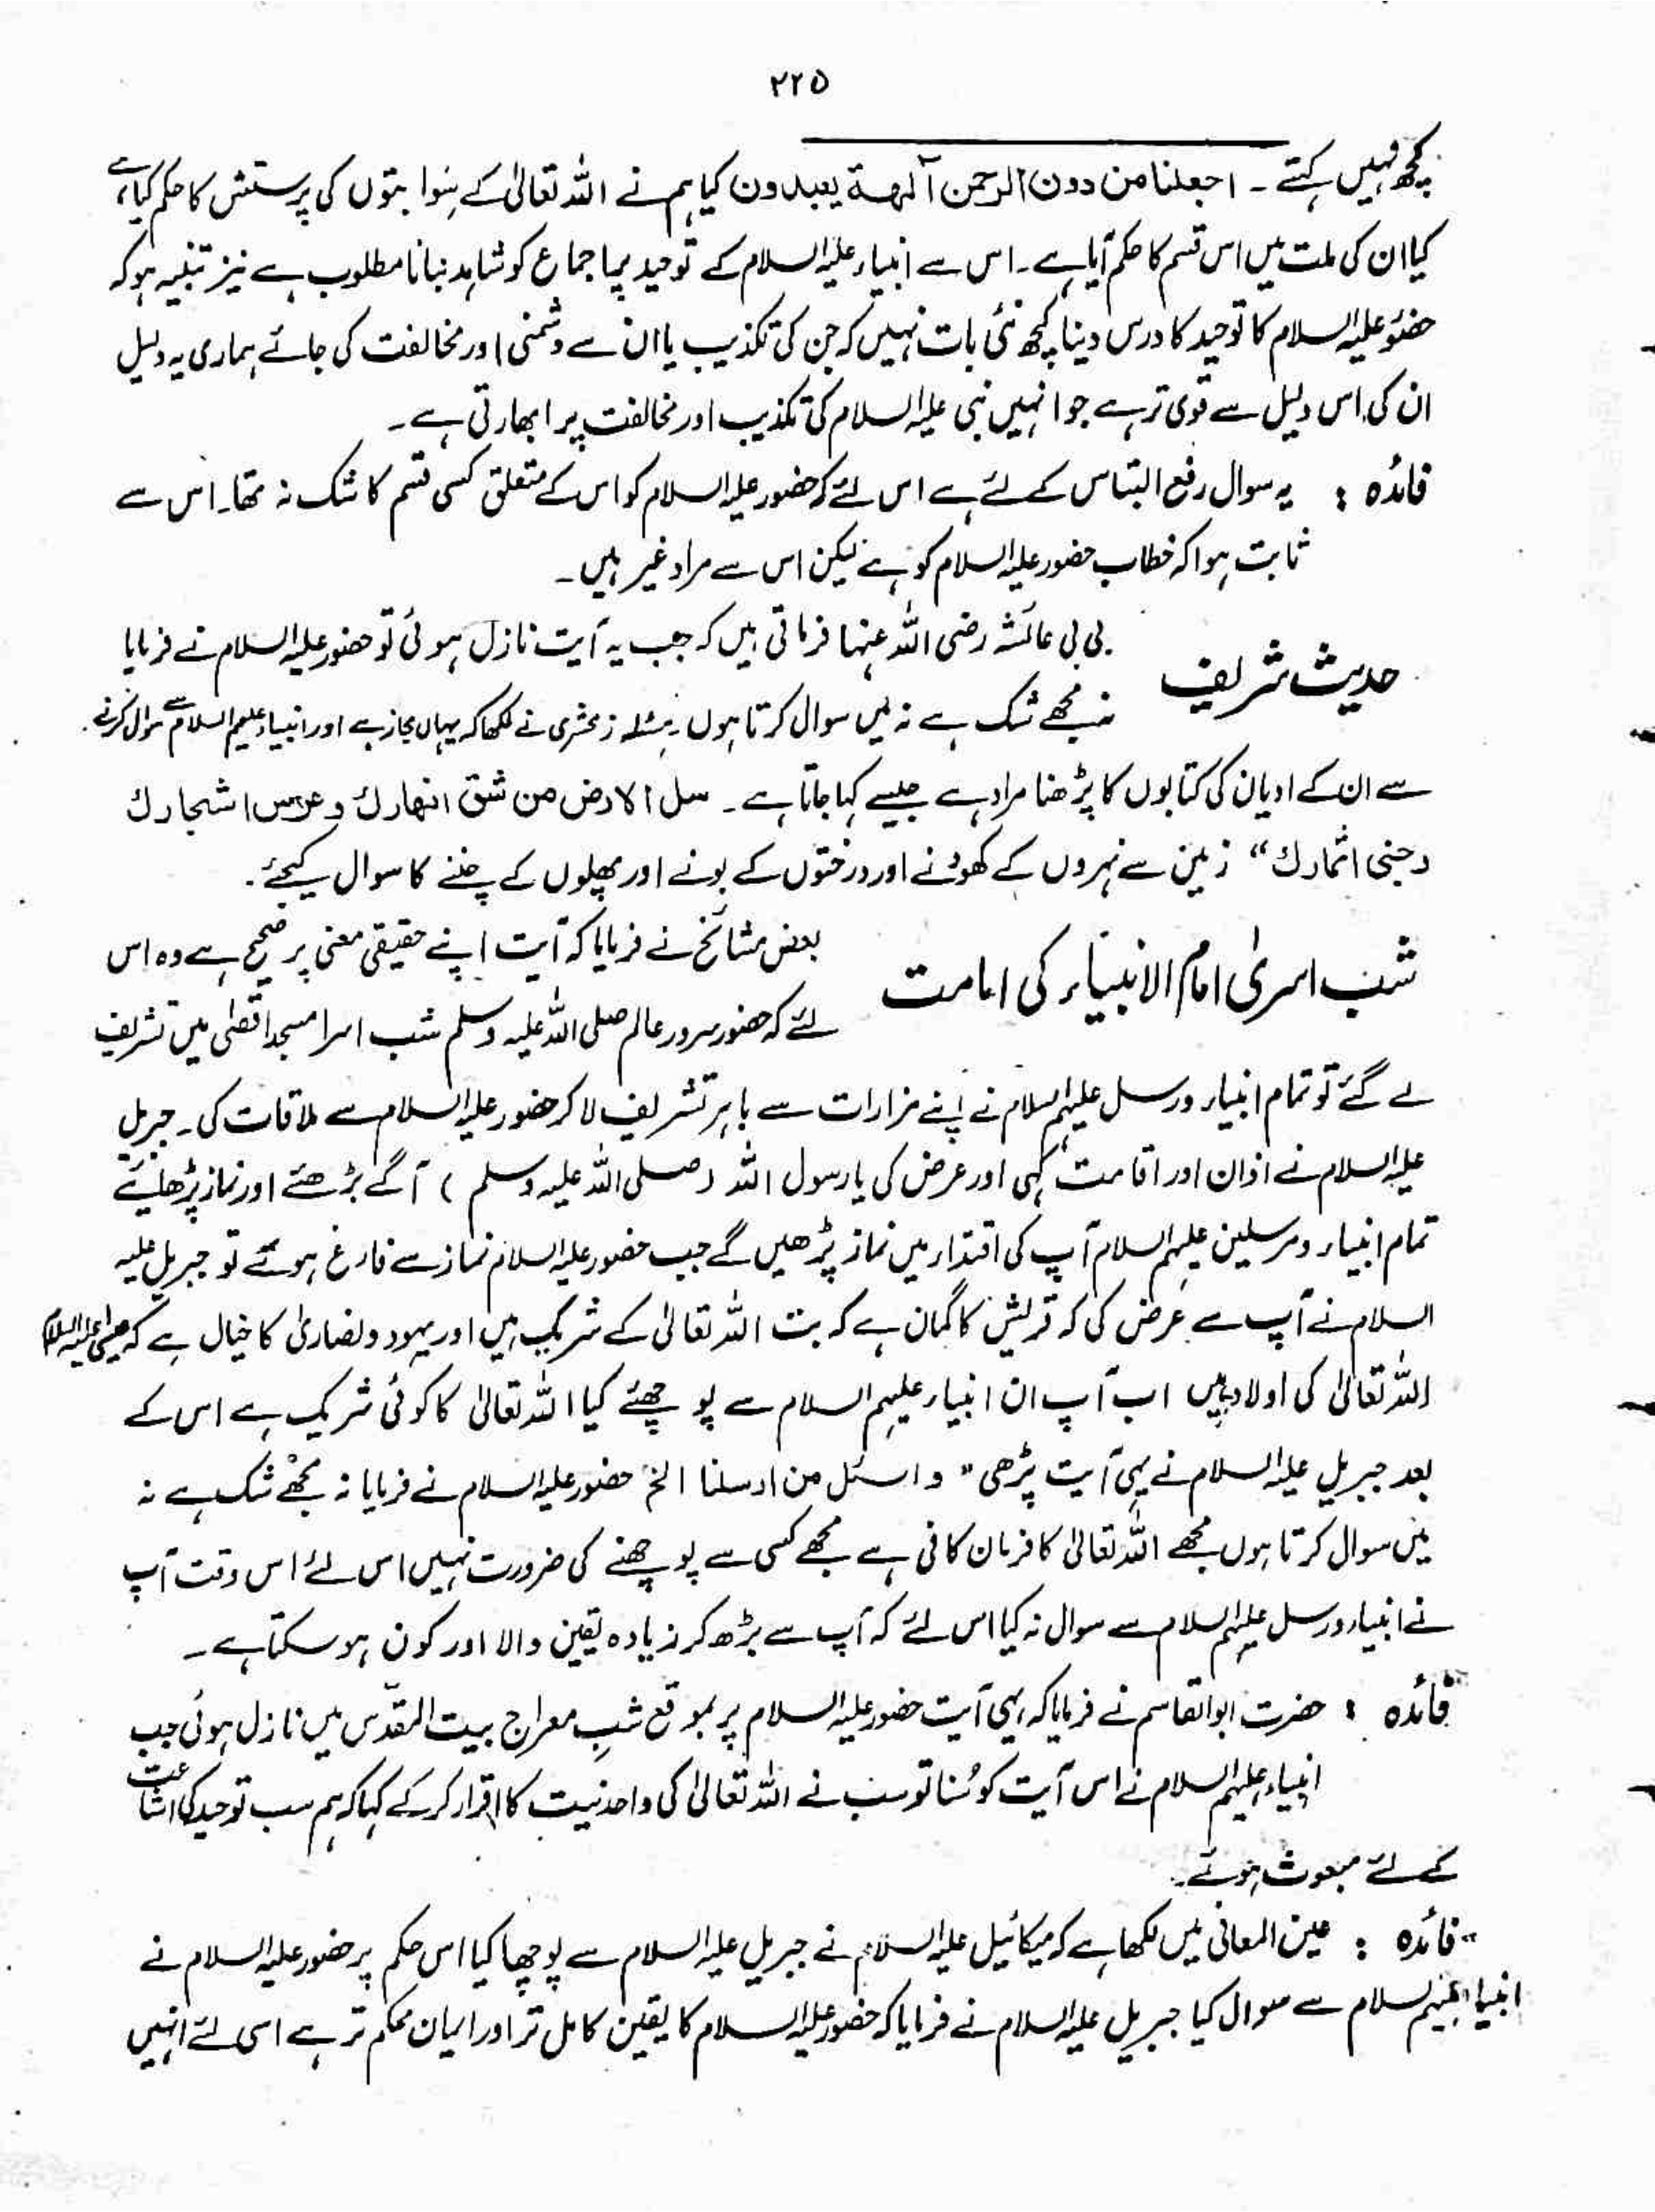 ۲۲۵
کچھ نہیں کہتے ۔ اجعلنا من دون الرحمن آلہة یعبدون کیا ہم نے اللہ تعالیٰ کے سوا بتوں کی پرستش کا حکم کیا ہے
کیا ان کی ملت میں اس قسم کا حکم آیا ہے ۔ اس سے انبیاء علیہ السلام کے توحید پر اجماع کو شاہد بنانا مطلوب ہے نیز تنبیہ ہو کہ
حضور علیہ السلام کا توحید کا درس دینا کچھ نئی بات نہیں کہ جن کی تکذیب یا ان سے دشمنی اور مخالفت کی جائے ہماری یہ دلیل
ان کی اس دلیل سے قوی تر ہے جو انہیں نبی علیہ السلام کی تکذیب اور مخالفت پر ابھارتی ہے ۔
فائدہ : یہ سوال رفع التباس کے لئے ہے اس لئے کہ حضور علیہ السلام کو اس کے متعلق کسی قسم کا شک نہ تھا ۔ اس سے
ثابت ہوا کہ خطاب حضور علیہ السلام کو ہے لیکن اس سے مراد غیر ہیں ۔
حدیث شریف
بی بی عائشہ رضی اللہ عنہا فرماتی ہیں کہ جب یہ آیت نازل ہوئی تو حضور علیہ السلام نے فرمایا
نہ مجھے شک ہے نہ میں سوال کرتا ہوں ۔ زمخشری نے لکھا کہ یہاں مجاز ہے اور انبیاء علیہم السلام سے سوال کرنے
سے ان کے ادیان کی کتابوں کا پڑھنا مراد ہے جیسے کہا جاتا ہے ۔ سل الارض من شق انھارك و عرس اشجارك
و جنی اثمارك “ زمین سے نہروں کے کھودنے اور درختوں کے بونے اور پھلوں کے چننے کا سوال کیجئے ۔
شب اسریٰ امام الانبیاء کی امامت
بعض مشائخ نے فرمایا کہ آیت اپنے حقیقی معنی پر صحیح ہے وہ اس
لئے کہ حضور سرور عالم صلی اللہ علیہ وسلم شب اسرا مسجد اقصٰی میں تشریف
لے گئے تو تمام انبیاء ورسل علیہم السلام نے اپنے مزارات سے باہر تشریف لا کر حضور علیہ السلام سے ملاقات کی ۔ جبریل
علیہ السلام نے اذان اور اقامت کہی اور عرض کی یا رسول اللہ (صلی اللہ علیہ وسلم ) آگے بڑھئے اور نماز پڑھایئے
تمام انبیاء ومرسلین علیہم السلام آپ کی اقتداء میں نماز پڑھیں گے جب حضور علیہ السلام نماز سے فارغ ہوئے تو جبریل علیہ
السلام نے آپ سے عرض کی کہ قریش کا گمان ہے کہ بت اللہ تعالیٰ کے شریک ہیں اور یہود ونصاریٰ کا خیال ہے کہ عیسٰی علیہ السلام
اللہ تعالیٰ کی اولاد ہیں اب آپ ان انبیاء علیہم السلام سے پوچھئے کیا اللہ تعالیٰ کا کوئی شریک ہے اس کے
بعد جبریل علیہ السلام نے یہی آیت پڑھی " واسئل من ارسلنا الخ حضور علیہ السلام نے فرمایا نہ مجھے شک ہے نہ
میں سوال کرتا ہوں مجھے اللہ تعالیٰ کا فرمان کافی ہے مجھے کسی سے پوچھنے کی ضرورت نہیں اس لئے اس وقت آپ
نے انبیاء ورسل علیہم السلام سے سوال نہ کیا اس لئے کہ آپ سے بڑھ کر زیادہ یقین والا اور کون ہو سکتا ہے ۔
فائدہ : حضرت ابوالقاسم نے فرمایا کہ یہی آیت حضور علیہ السلام پر بموقع شبِ معراج بیت المقدّس میں نازل ہوئی جب
انبیاء علیہم السلام نے اس آیت کو سُنا تو سب نے اللہ تعالیٰ کی واحدنیت کا اقرار کرکے کہا کہ ہم سب توحید کی اشاعت
کے لئے مبعوث ہوئے ۔
فائدہ : عین المعانی میں لکھا ہے کہ میکائیل علیہ السلام نے جبریل علیہ السلام سے پوچھا کیا اس حکم پر حضور علیہ السلام نے
انبیاء علیہم السلام سے سوال کیا جبریل علیہ السلام نے فرمایا کہ حضور علیہ السلام کا یقین کامل تر اور ایمان محکم تر ہے اسی لئے انہیں